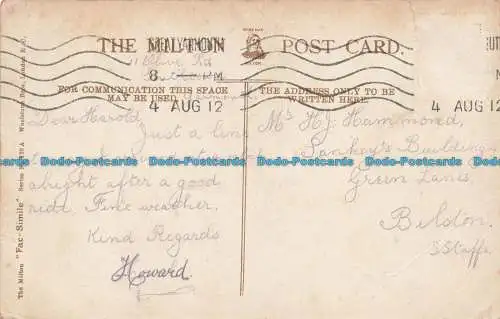 THE MILTON POST CARD.
8. PM
4 AUG 12
4 AUG 12
FOR COMMUNICATION THIS SPACE
MAY BE USED.
THE ADDRESS ONLY TO BE
WRITTEN HERE.
Dear Harold,
Just a line
alright after a good
ride. Fine weather.
Kind Regards
Howard.
Mr H. J. Hammond,
Sankey's Buildings
Green Lanes,
Bilston.
S Staffs.
The Milton "Fac-Simile" Series Woolstone Bros., London E.C.
Dodo-Postcards Dodo-Postcards Dodo-Postcards Dodo-Postcards